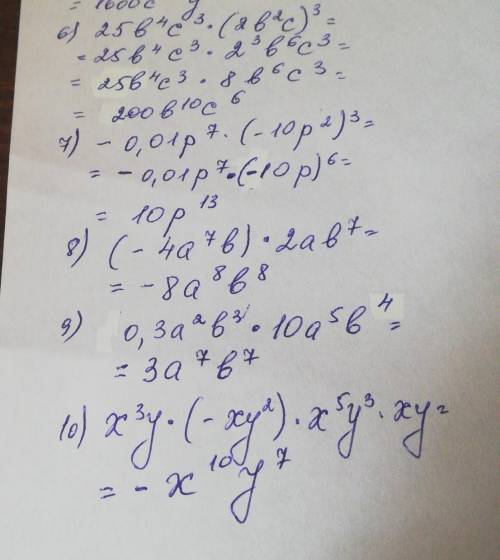 = 1600c y
6) 25в⁴c³·(2в²c)³=
= 25в⁴c³·2³в⁶c³=
= 25в⁴c³·8в⁶c³=
= 200в¹⁰c⁶
7) -0,01p⁷·(-10p²)³=
= -0,01p⁷·(-10p)⁶=
= 10p¹³
8) (-4a⁷в)·2aв⁷=
= -8a⁸в⁸
9) 0,3a²в³·10a⁵в⁴=
= 3a⁷в⁷
10) x³y·(-xy²)·x⁵y³·xy=
= -x¹⁰y⁷